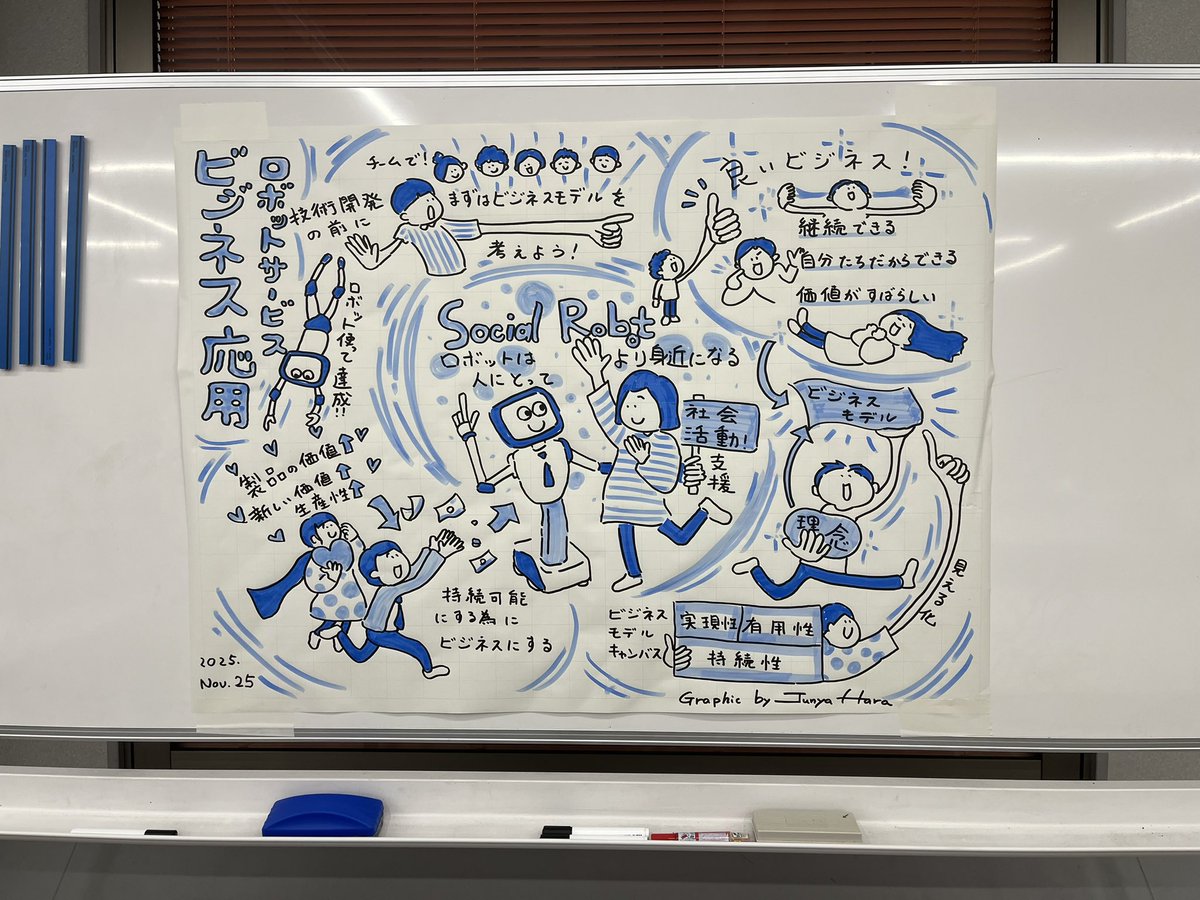 ロボットサービス
ビジネス応用
チームで!
技術開発
の前に
まずはビジネスモデルを
考えよう!
良いビジネス!
継続できる
自分たちだからできる
価値がすばらしい
ロボット使って達成!!
Social Robot
ロボットは
人にとって
より身近になる
社会
活動!
支援
ビジネス
モデル
理念
見える化
製品の価値
新しい価値
生産性
持続可能
にする為に
ビジネスにする
ビジネス
モデル
キャンバス
実現性
有用性
持続性
2025.
Nov. 25
Graphic by Junya Hara